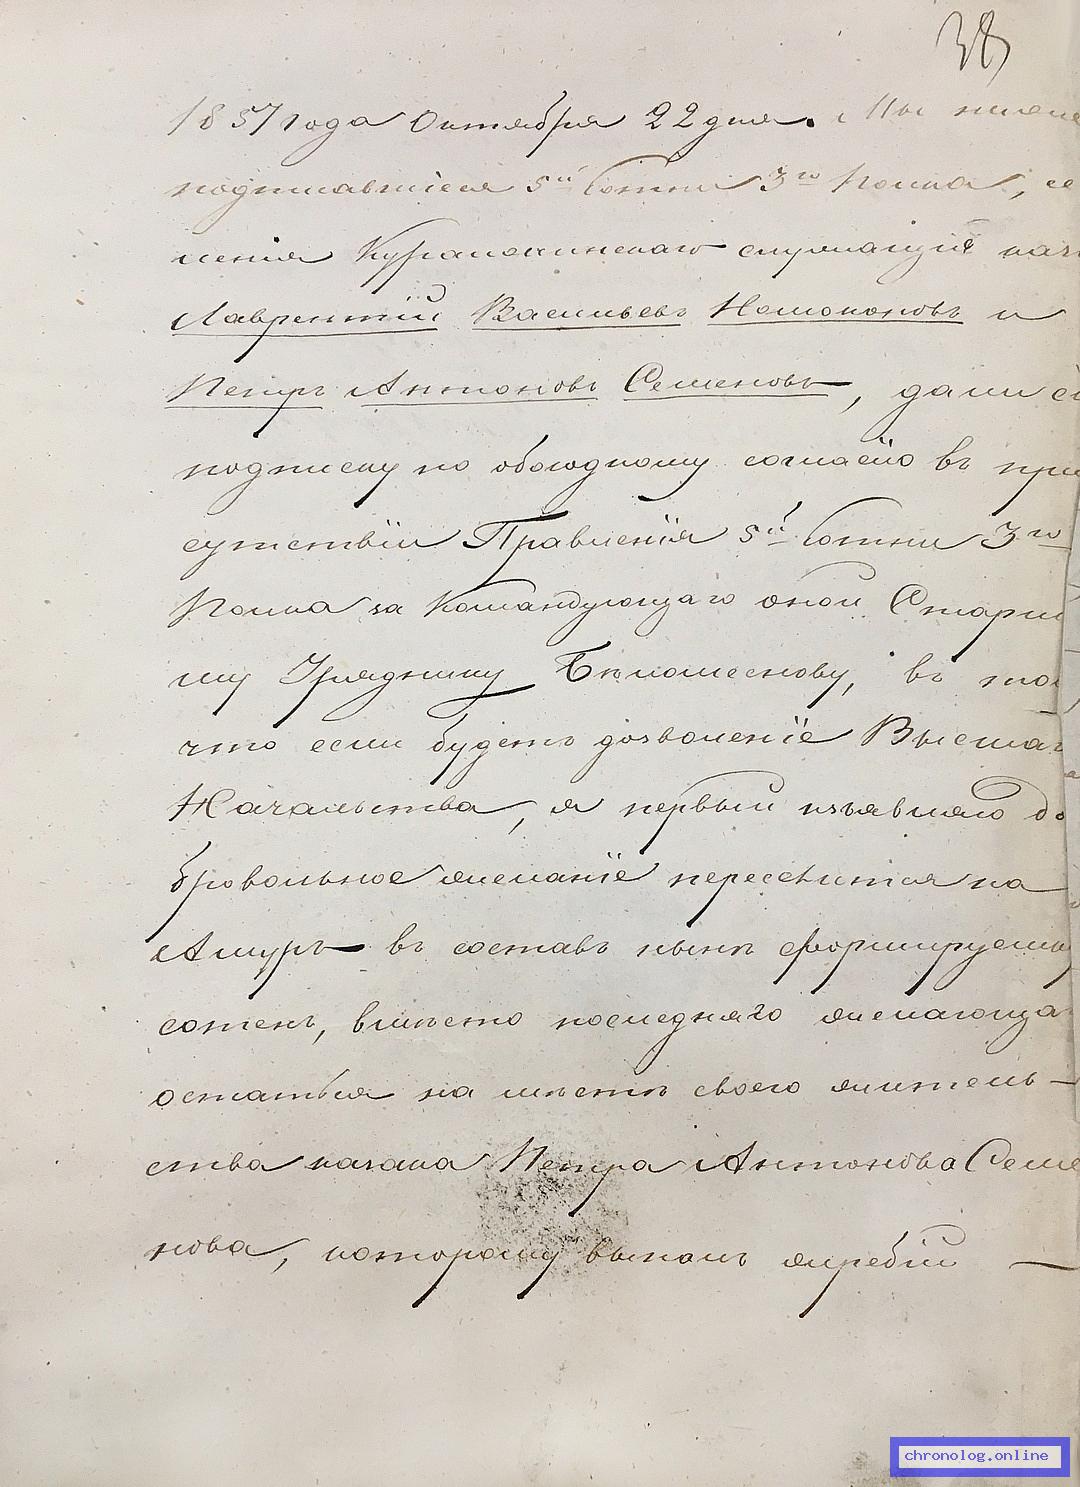 38
1857 года Октября 22 дня. Мы ниже
подписавшіеся 5й Сотни 3го Полка, се
ленія служащій каза
Лаврентій Васильевъ Номоконовъ и
Петръ Антоновъ Семеновъ, дали сі
подписку по обоюдному согласію въ при
сутствіи Правленія 5й Сотни 3го
Полка за Командующаго оной Старш
му Уряднику Бѣломеснову, въ том
что если будетъ дозволеніе Высшаг
Начальства, я первый изъявляю до
бровольное желаніе переселится на
Амуръ въ составъ нынѣ сформируемы
сотенъ, вмѣсто последняго желающа
остаться на мѣстѣ своего житель-
ства казака Петра Антонова Семе
нова, которому выпалъ жребій —
chronolog.online